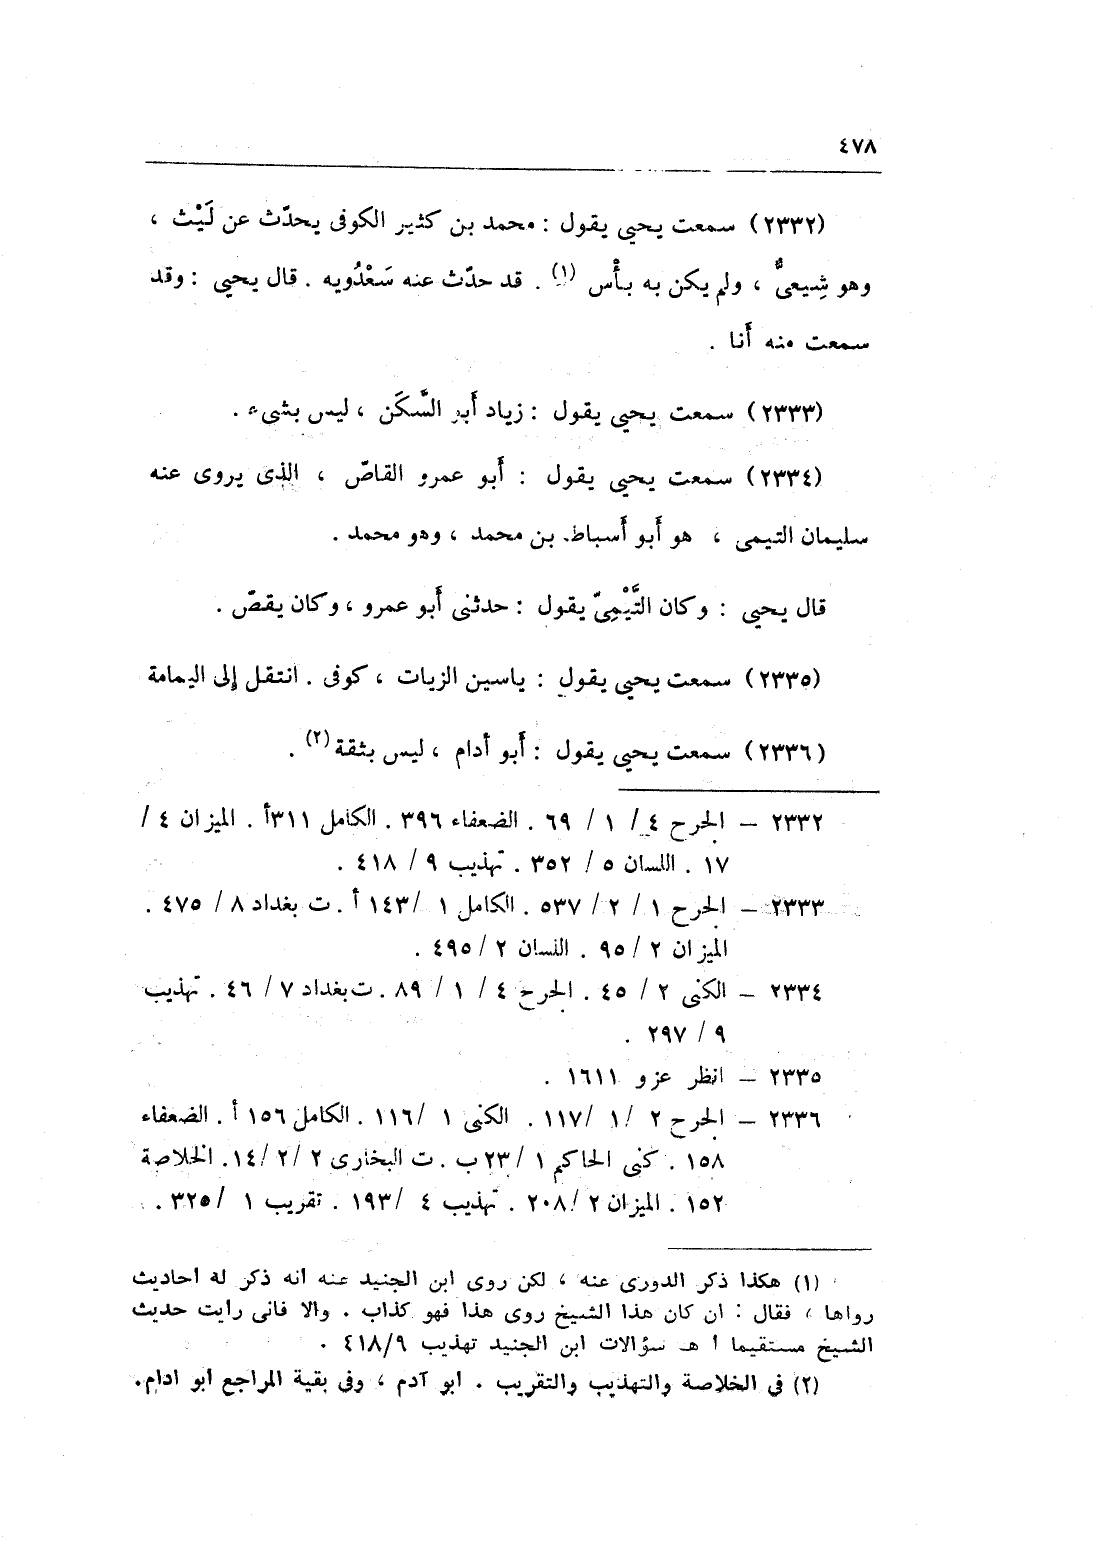 ٤٧٨
(٢٣٣٢) سمعت يحيى يقول : محمد بن كثير الكوفى يحدّث عن لَيْث ،
وهو شِيعىٌّ ، ولم يكن به بأْس (١) . قد حدّث عنه سَعْدُويه . قال يحيى : وقد
سمعت منه أَنا .
(٢٣٣٣) سمعت يحيى يقول : زياد أَبو السَّكَن ، ليس بشىء .
(٢٣٣٤) سمعت يحيى يقول : أَبو عمرو القاصّ ، الذى يروى عنه
سليمان التيمى ، هو أَبو أَسباط بن محمد ، وهو محمد .
قال يحيى : وكان التَّيْمِىّ يقول : حدثنى أَبو عمرو ، وكان يقصّ .
(٢٣٣٥) سمعت يحيى يقول : ياسين الزيات ، كوفى . انتقل إلى اليمامة
(٢٣٣٦) سمعت يحيى يقول : أَبو أدام ، ليس بثقة (٢) .
٢٣٣٢ – الجرح ٤ / ١ / ٦٩ . الضعفاء ٣٩٦ . الكامل ٣١١أ . الميزان ٤ /
١٧ . اللسان ٥ / ٣٥٢ . تهذيب ٩ / ٤١٨ .
٢٣٣٣ – الجرح ١ / ٢ / ٥٣٧ . الكامل ١ /١٤٣ أ . ت بغداد ٨ / ٤٧٥ .
الميزان ٢ / ٩٥ . اللسان ٢ / ٤٩٥ .
٢٣٣٤ – الكنى ٢ / ٤٥ . الجرح ٤ / ١ / ٨٩ . ت بغداد ٧ / ٤٦ . تهذيب
٩ / ٢٩٧ .
٢٣٣٥ – انظر عزو ١٦١١ .
٢٣٣٦ – الجرح ٢ / ١ / ١١٧ . الكنى ١ / ١١٦ . الكامل ١٥٦ أ . الضعفاء
١٥٨ . كنى الحاكم ١ / ٢٣ ب . ت البخارى ٢ /٢ /١٤ . الخلاصة
١٥٢ . الميزان ٢ /٢٠٨ . تهذيب ٤ / ١٩٣ . تقريب ١ / ٣٢٥ .
(١) هكذا ذكر الدورى عنه ، لكن روى ابن الجنيد عنه انه ذكر له احاديث
رواها ، فقال : ان كان هذا الشيخ روى هذا فهو كذاب . والا فانى رايت حديث
الشيخ مستقيما ا هـ سؤالات ابن الجنيد تهذيب ٤١٨/٩ .
(٢) في الخلاصة والتهذيب والتقريب . ابو آدم ، وفى بقية المراجع ابو ادام.